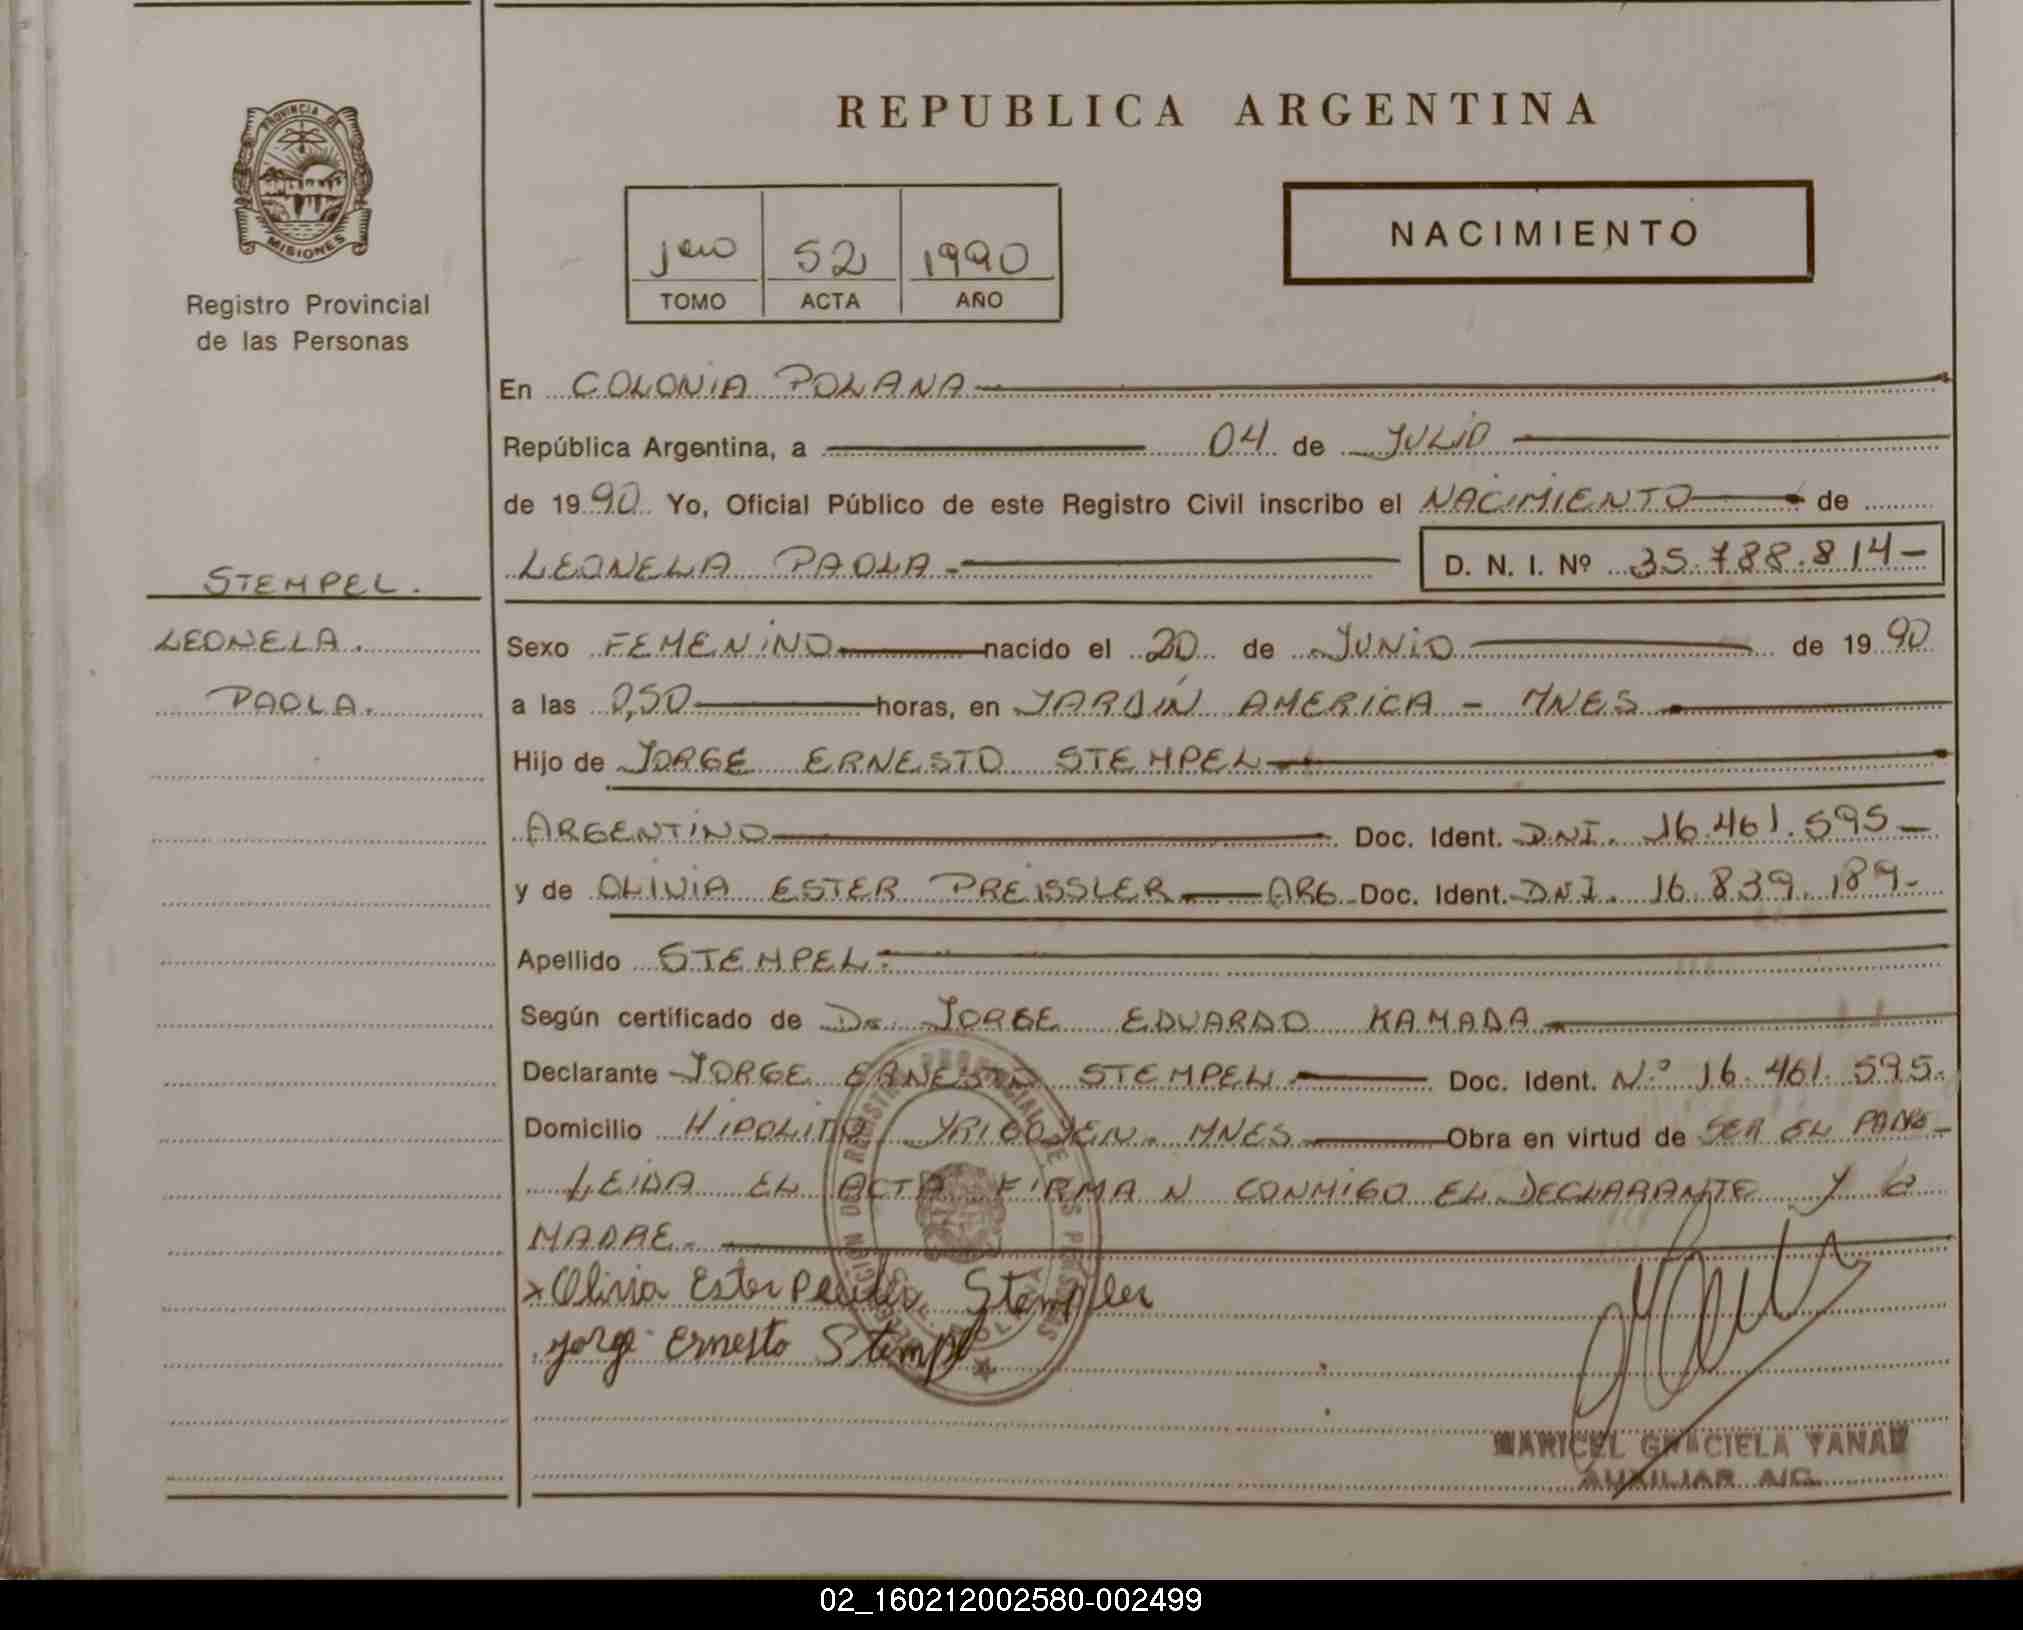 REPUBLICA ARGENTINA
PROVINCIA DE
MISIONES
Registro Provincial
de las Personas
NACIMIENTO
52 1990
TOMO ACTA AÑO
En COLONIA POLANA
República Argentina, a 04 de JULIO
de 1990 Yo, Oficial Público de este Registro Civil inscribo el NACIMIENTO de
LEONELA PAOLA.- D. N. I. Nº 35.788.814-
STEMPEL.
LEONELA.
PAOLA.
Sexo FEMENINO nacido el 20 de JUNIO de 1990
a las 0,50 horas, en JARDIN AMERICA - MNES
Hijo de JORGE ERNESTO STEMPEL
ARGENTINO Doc. Ident. DNI. 16.461.595-
y de OLIVIA ESTER PREISSLER ARG. Doc. Ident. DNI. 16.839.189-
Apellido STEMPEL.
Según certificado de Dr. JORGE EDUARDO KAMADA
Declarante JORGE ERNESTO STEMPEL Doc. Ident. Nº 16.461.595.
Domicilio HIPOLITO YRIGOYEN. MNES Obra en virtud de SER EL PADRE-
LEIDA EL ACTA FIRMAN CONMIGO EL DECLARANTE Y LA
MADRE.
x Olivia Ester
Jorge Ernesto Stempel
MARICEL GRACIELA YANAK
AUXILIAR
02_160212002580-002499